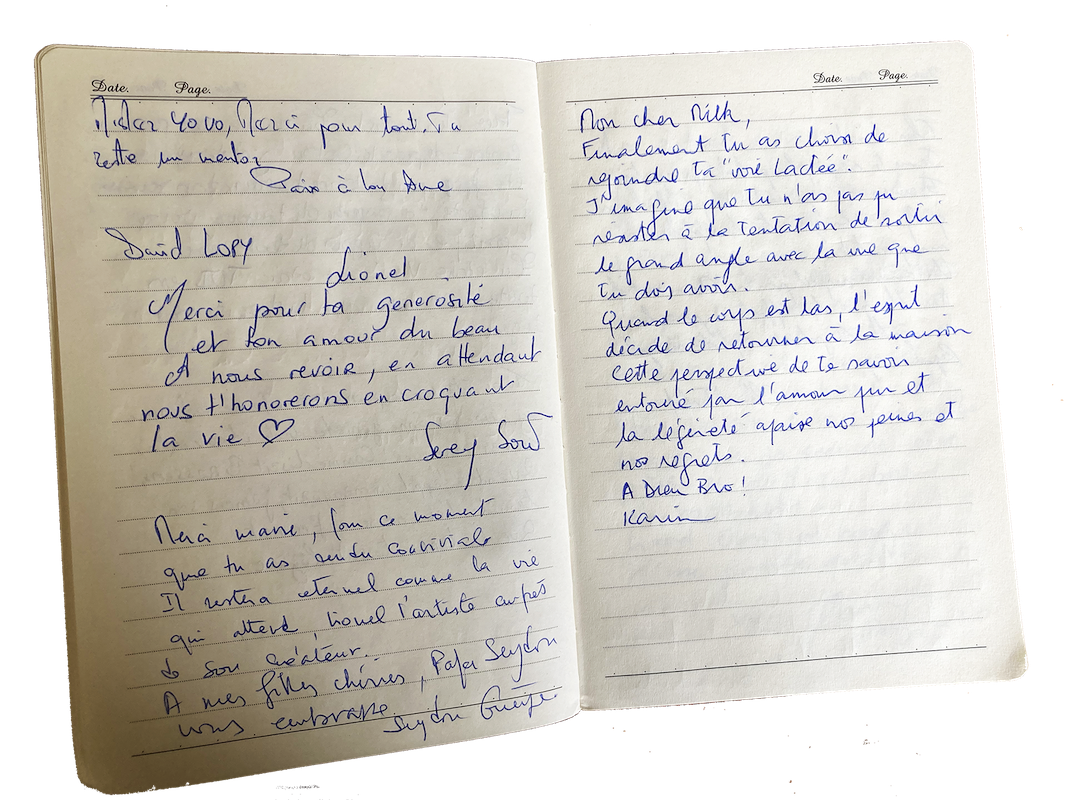 Date. Page.
Yovo, Merci pour tout. Tu
reste un mentor
Paix à ton Ame
David Lopy
Lionel
Merci pour ta generosité
et ton amour du beau
A nous revoir, en attendant
nous t'honorerons en croquant
la vie ♡
Merci marie, pour ce moment
que tu as rendu conviviale
Il restera eternel comme la vie
qui attend lionel l'artiste auprès
son créateur.
A mes filles chéries, Papa Seydou
vous embrasse
Seydou Gueye
Date. Page.
Mon cher Milk,
Finalement tu as choisi de
rejoindre ta "voie Lactée".
J'imagine que tu n'as pas pu
résister à la tentation de sortir
le grand angle avec la vue que
tu dois avoir.
Quand le corps est las, l'esprit
décide de retourner à la maison
Cette perspective de te savoir
entouré par l'amour pur et
la légèreté apaise nos peines et
nos regrets.
A Dieu Bro!
Karim